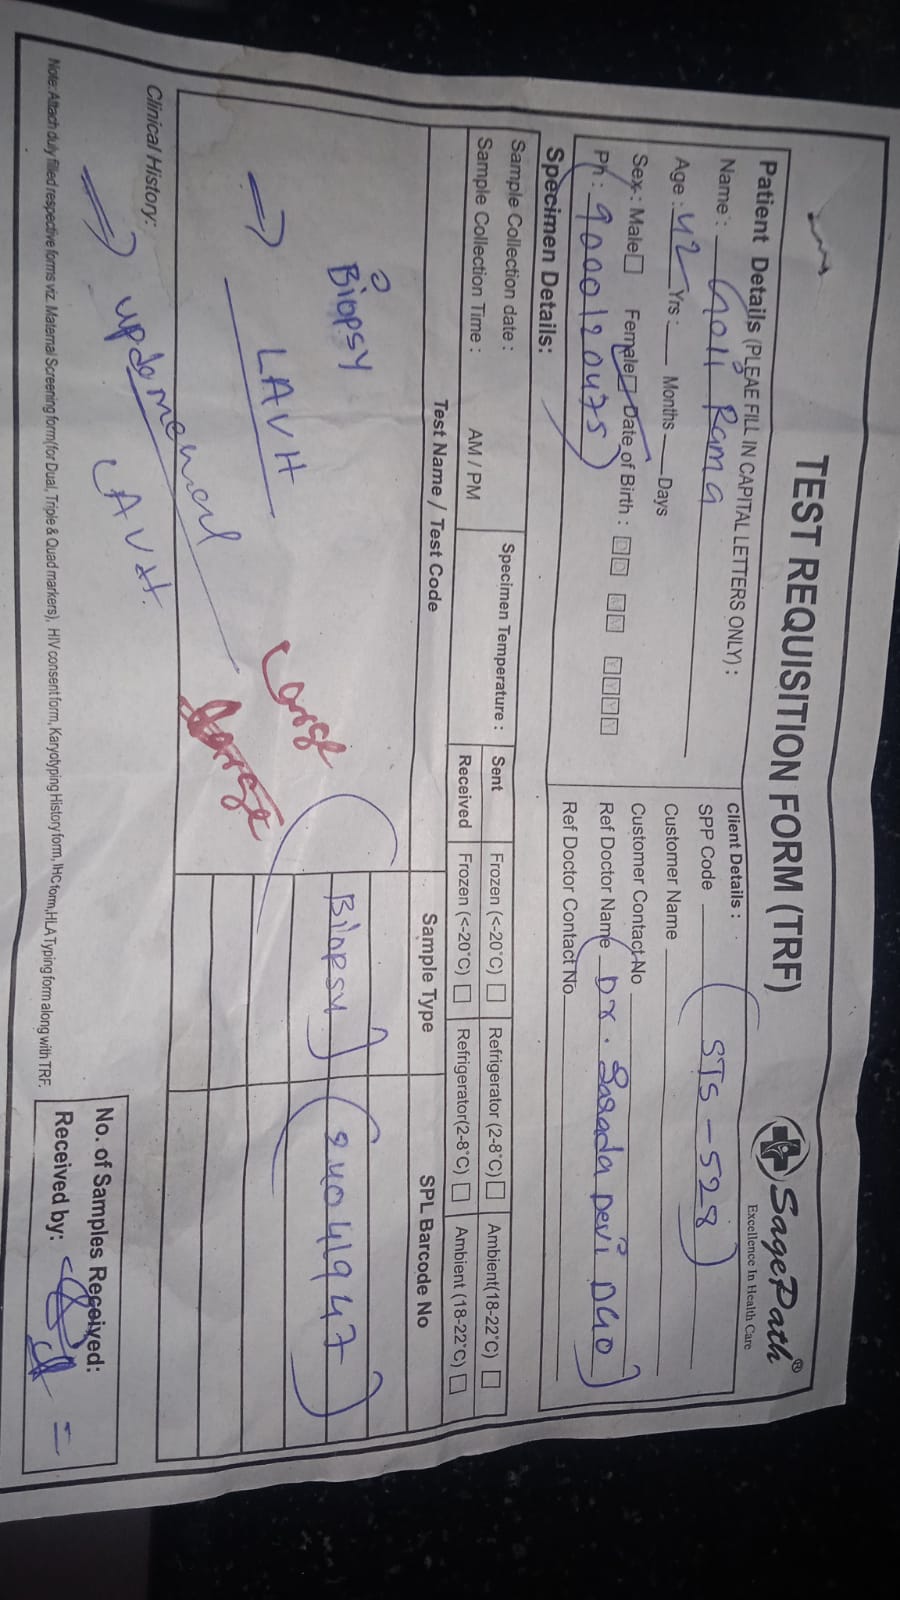 TEST REQUISITION FORM (TRF)
SagePath®
Excellence In Health Care
Patient Details (PLEAE FILL IN CAPITAL LETTERS ONLY) :
Name : Goli Rama
Age : 42 Yrs : Months Days
Sex : Male Female Date of Birth : D D M M Y Y Y Y
Ph : 9000120475
Client Details :
SPP Code STS - 528
Customer Name
Customer Contact No
Ref Doctor Name Dr. Sarada Devi DGO
Ref Doctor Contact No
Specimen Details:
Sample Collection date :
Sample Collection Time : AM / PM
Specimen Temperature :
Sent Frozen (<-20°C) Refrigerator (2-8°C) Ambient(18-22°C)
Received Frozen (<-20°C) Refrigerator(2-8°C) Ambient (18-22°C)
Test Name / Test Code Sample Type SPL Barcode No
Biopsy Biopsy
LAVH
Large
Clinical History:
updomenal
LAVH.
No. of Samples Received:
Received by:
Note: Attach duly filled respective forms viz. Maternal Screening form(for Dual, Triple & Quad markers), HIV consent form, Karyotyping History form, IHC form,HLA Typing form along with TRF.